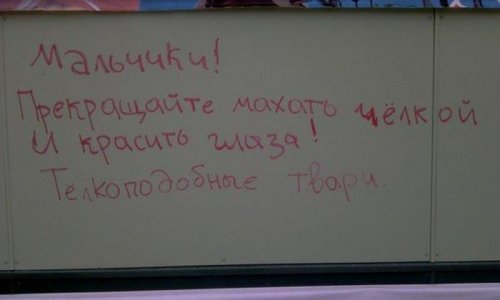 Мальчики!
Прекращайте махать чёлкой
И красить глаза!
Телкоподобные твари